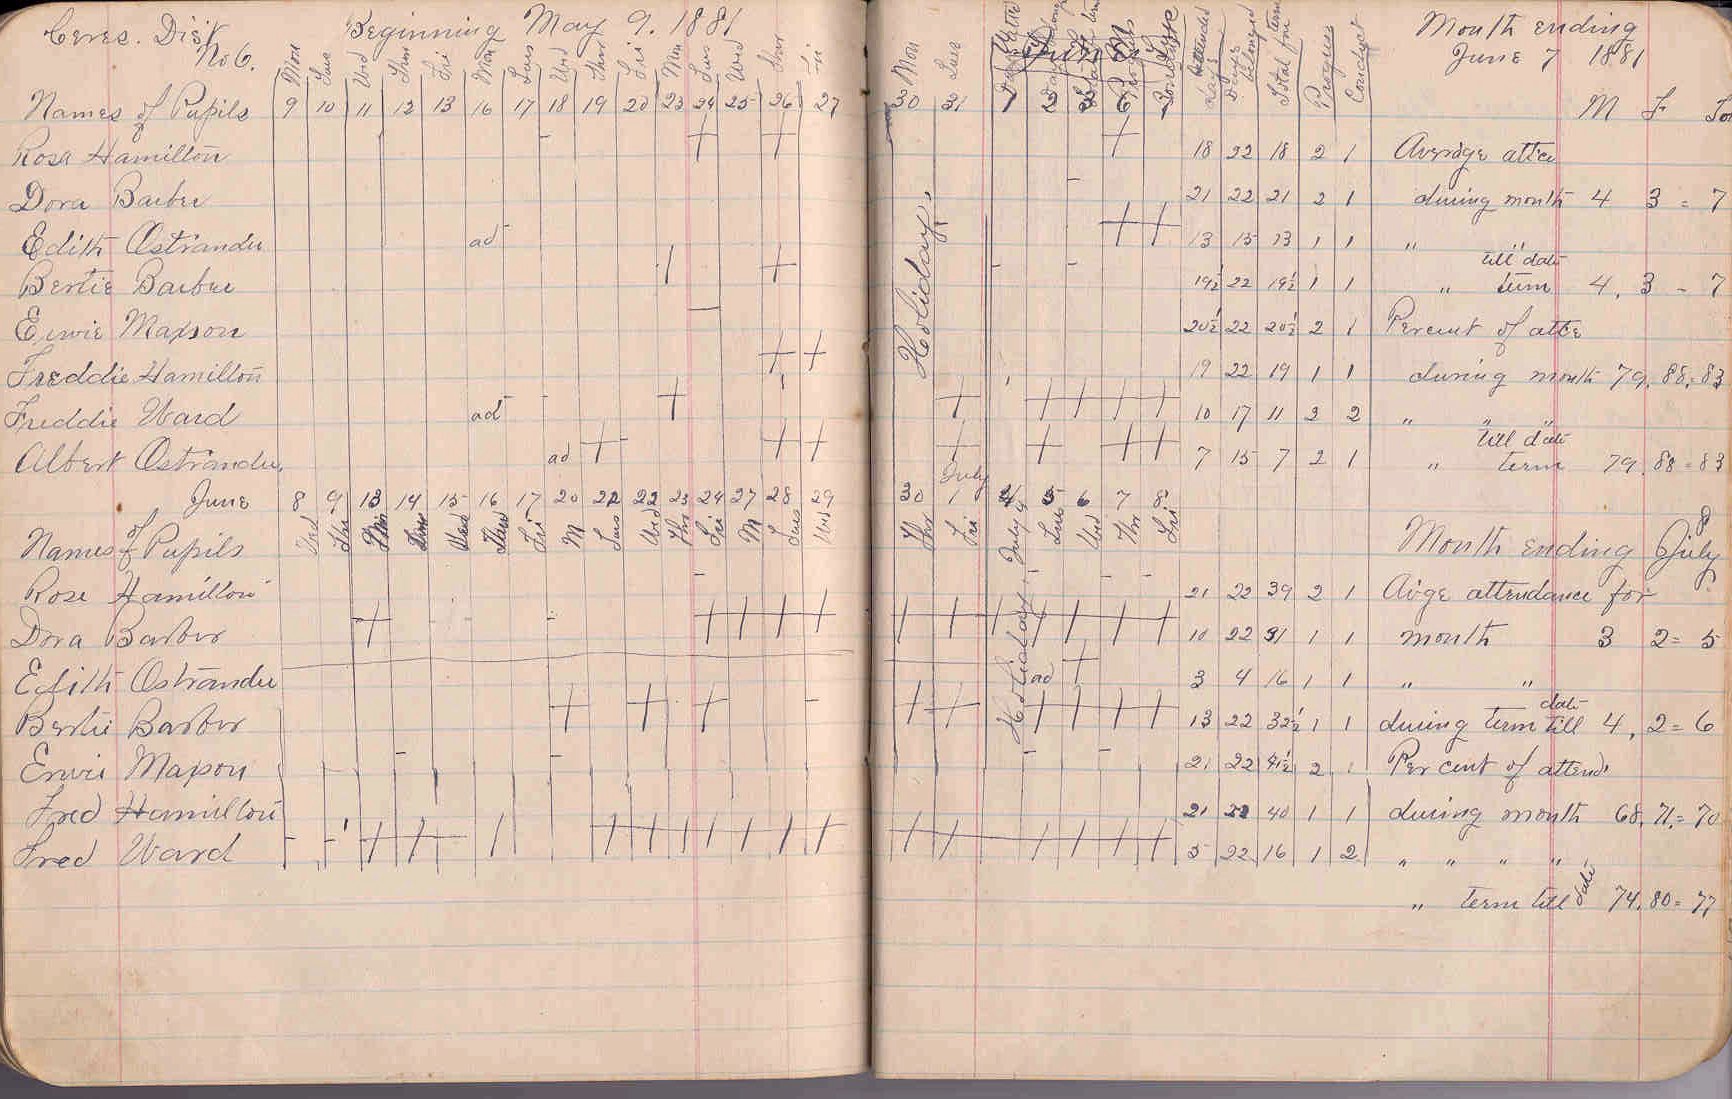 Ceres. Dist No 6. Beginning May 9. 1881
Mon Tues Wed Thur Fri Mon Tues Wed Thur Fri Mon Tues Wed Thur Fri Mon Tues
Names of Pupils 9 10 11 12 13 16 17 18 19 20 23 24 25 26 27 30 31
Days attended Days belonged Total for term Progress Conduct
Month ending
June 7 1881
M F
Rose Hamilton 18 22 18 2 1 Average atte
Dora Barber 21 22 21 2 1 during month 4 3 = 7
Edith Ostrander ad 13 15 13 1 1 " " till date
Bertie Barber 19½ 22 19½ 1 1 " term 4, 3 - 7
Erwie Maxson 20½ 22 20½ 2 1 Percent of atte
Freddie Hamilton 19 22 19 1 1 during month 79, 88, = 83
Freddie Ward ad 10 17 11 2 2 " " " till date
Albert Ostrander, ad 7 15 7 2 1 " term 79, 88 = 83
Holiday
June 8 9 13 14 15 16 17 20 21 22 23 24 27 28 29 30 July 1 4 5 6 7 8
Names of Pupils Wed Thur Wed Fri M Tues Wed Thr Fri M Tues Wed Thr Fri July 4 Tues Wed Thr Fri
Month ending July 8
Rose Hamilton 21 22 39 2 1 Av'ge attendance for
Dora Barber 10 22 31 1 1 month 3 2 = 5
Edith Ostrander ad 3 4 16 1 1 " "
Bertie Barber 13 22 32½ 1 1 during term till date 4, 2 = 6
Erwie Maxson 21 22 41½ 2 1 Per cent of attend'
Fred Hamilton 21 22 40 1 1 during month 68, 71, = 70
Fred Ward 5 22 16 1 2 " " " "
Holiday
" term till date 74, 80 = 77